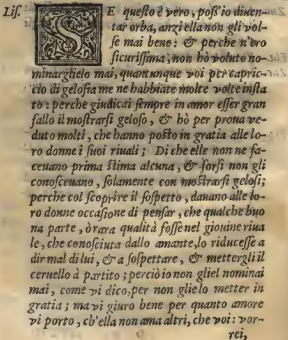 Lis. SE questo è vero, poss'io diuen-
tar orba, anzi ella non gli vol-
se mai bene: & perche n'ero
sicurissima, non hò voluto no-
minarglielo mai, quantunque voi per capric-
cio di gelosia me ne habbiate molte volte insta
to: perche giudicai sempre in amor esser gran
fallo il mostrarsi geloso, & hò per proua ve-
duto molti, che hanno posto in gratia alle lo-
ro donne i suoi riuali; Di che elle non ne fa-
ceuano prima stima alcuna, & forsi non gli
conosceuano, solamente con mostrarsi gelosi;
perche col scoprire il sospetto, dauano alle lo-
ro donne occasione di pensar, che qualche buo
na parte, ò rara qualità fosse nel giouine riua
le, che conosciuta dallo amante, lo riducesse a
dir mal di lui, & a sospettare, & mettergli il
ceruello à partito; perciò io non gliel nominai
mai, come vi dico, per non glielo metter in
gratia; ma vi giuro bene per quanto amore
vi porto, ch'ella non ama altri, che voi: vor-
rei,